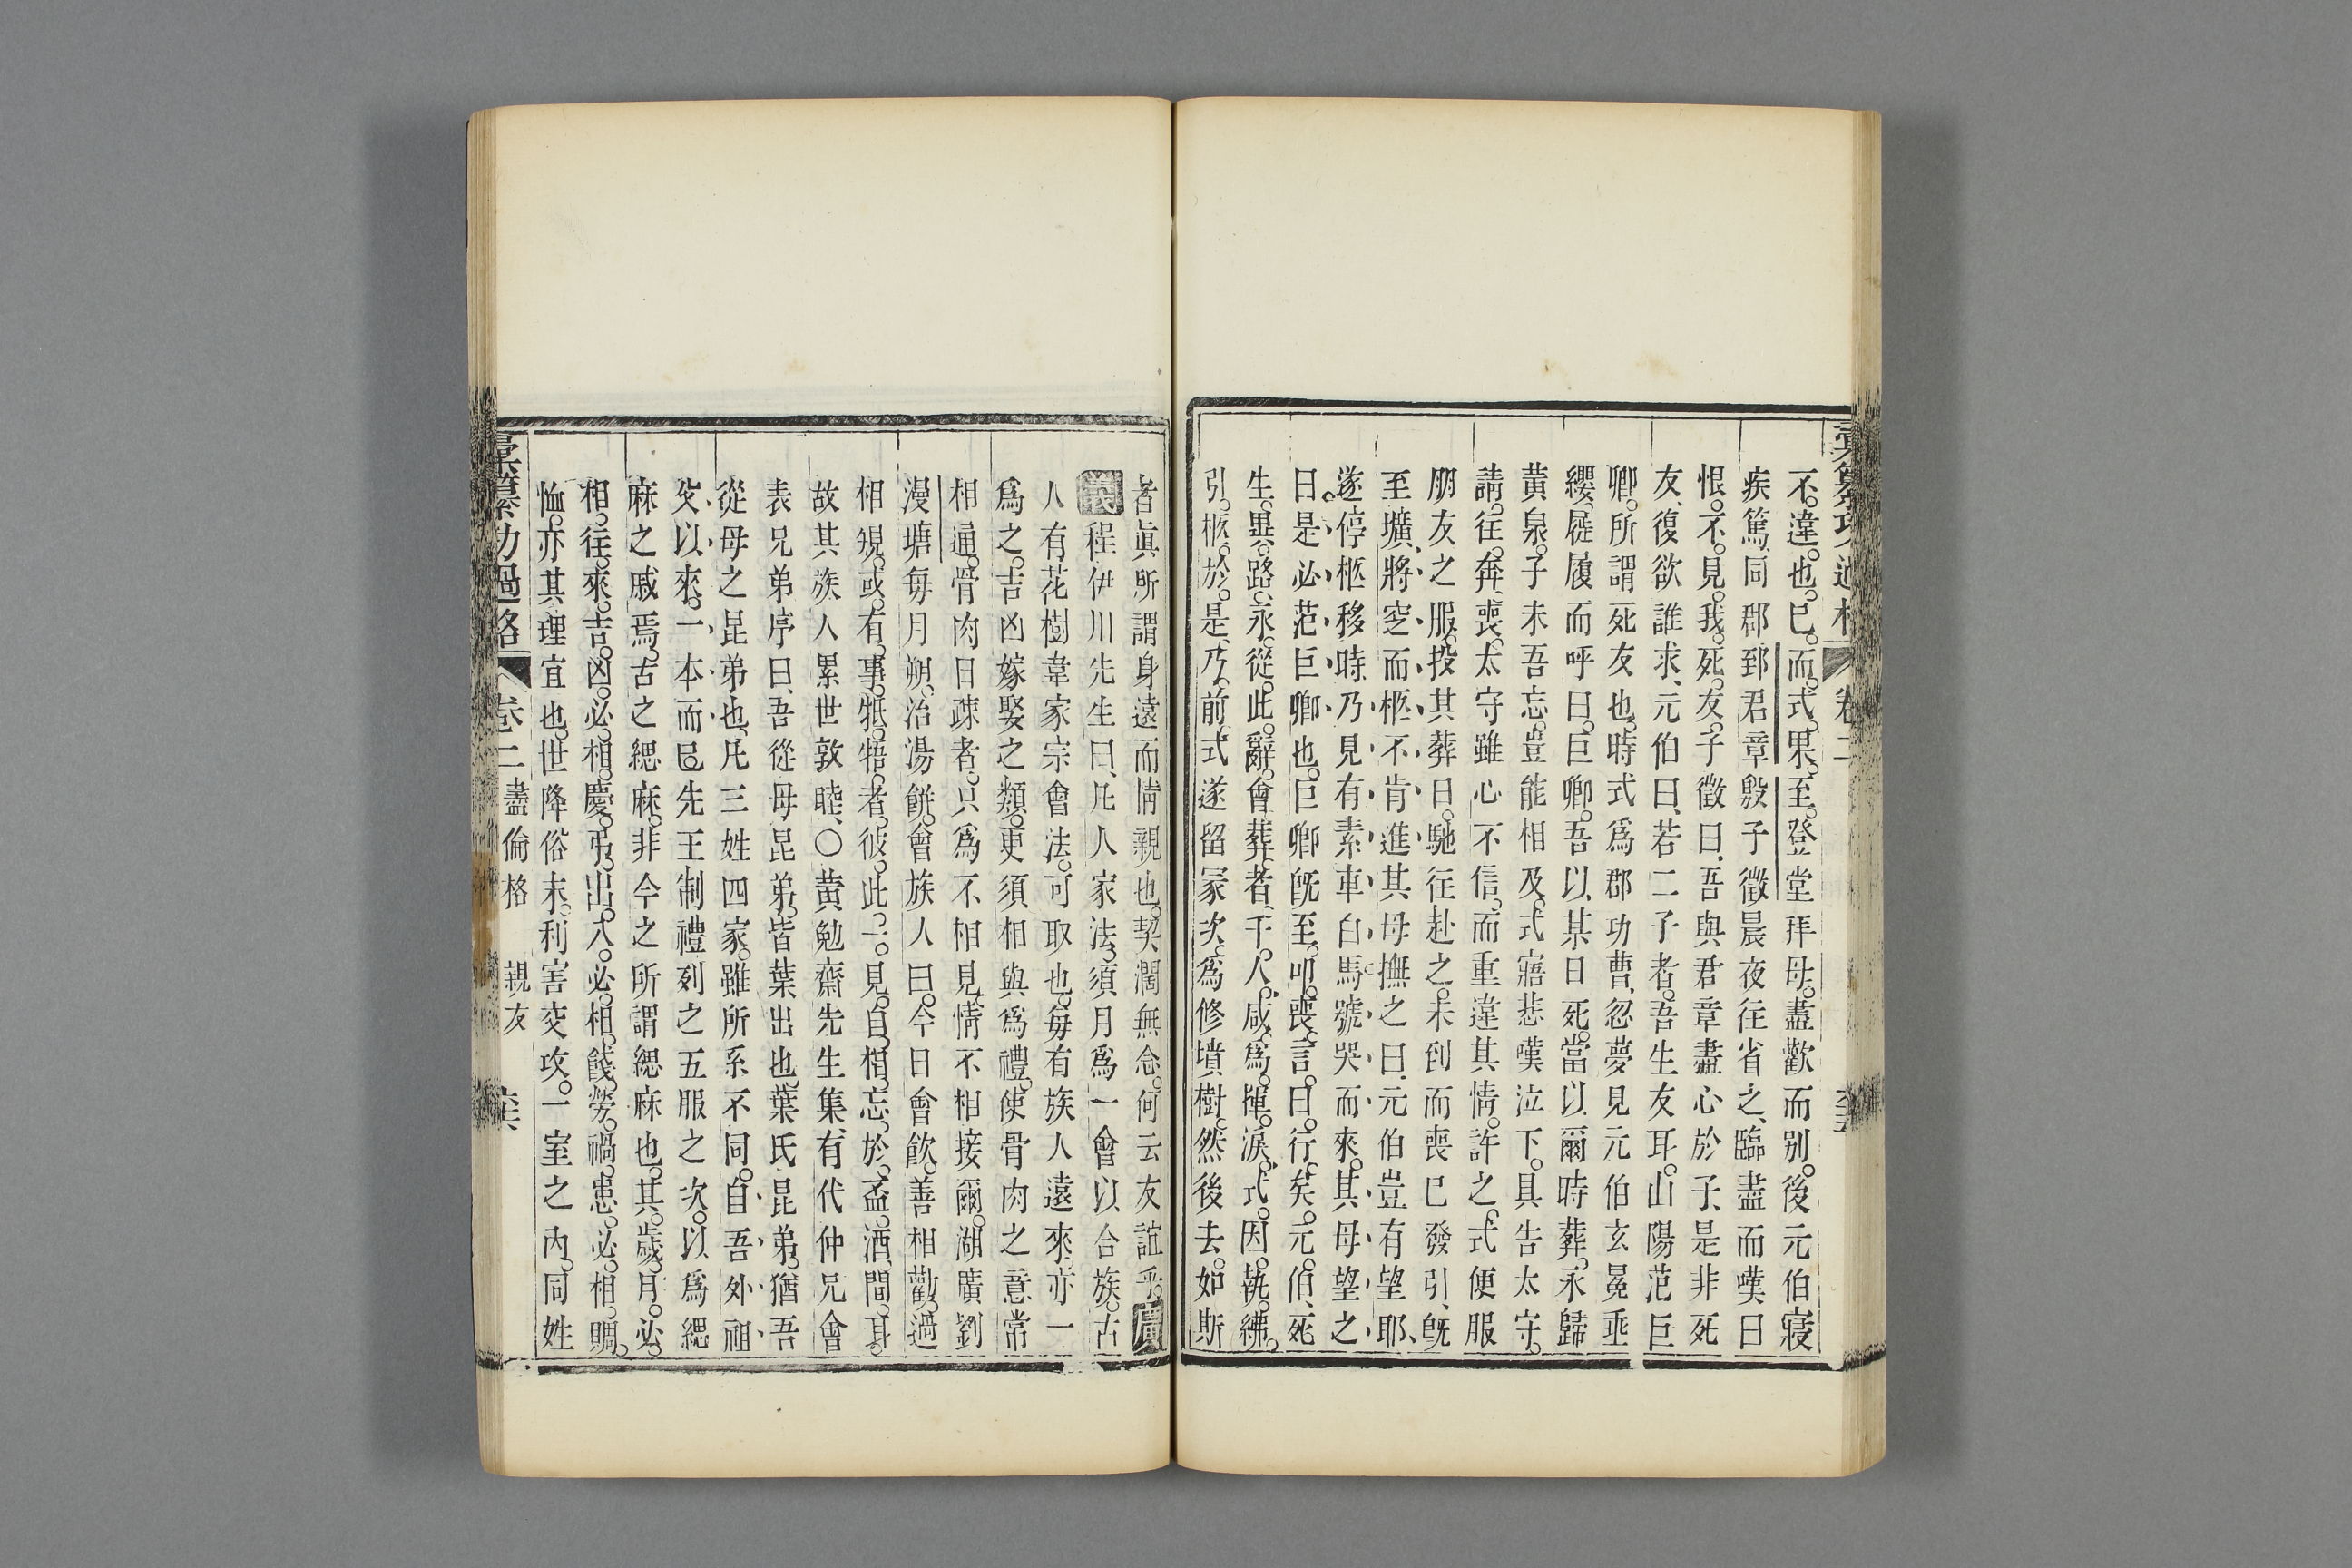 不違也巳而式果至登堂拜母盡歡而別後元伯寢
疾篤同郡郅君章殷子徵晨夜往省之臨盡而嘆曰
恨不見我死友子徵曰吾與君章盡心於子是非死
友復欲誰求元伯曰若二子者吾生友耳山陽范巨
卿所謂死友也時式為郡功曹忽夢見元伯玄冕垂
纓屣履而呼曰巨卿吾以某日死當以爾時葬永歸
黃泉子未吾忘豈能相及式寤悲嘆泣下具告太守
請往奔喪太守雖心不信而重違其情許之式便服
朋友之服投其葬日馳往赴之未到而喪巳發引旣
至壙將窆而柩不肯進其母撫之曰元伯豈有望耶
遂停柩移時乃見有素車白馬號哭而來其母望之
曰是必范巨卿也巨卿旣至叩喪言曰行矣元伯死
生異路永從此辭會葬者千人咸為揮淚式因執紼
引柩於是乃前式遂留冢次為修墳樹然後去如斯
者眞所謂身遠而情親也契濶無念何云友誼乎廣
義程伊川先生曰凡人家法須月為一會以合族古
人有花樹韋家宗會法可取也每有族人遠來亦一
為之吉凶嫁娶之類更須相與為禮使骨肉之意常
相通骨肉日疎者只為不相見情不相接爾湖廣劉
漫塘每月朔治湯餅會族人曰今日會飲善相勸過
相規或有事牴牾者彼此一見自相忘於盃酒間耳
故其族人累世敦睦○黃勉齋先生集有代仲兄會
表兄弟序曰吾從母昆弟皆葉出也葉氏昆弟猶吾
從母之昆弟也凡三姓四家雖所系不同自吾外祖
父以來一本而巳先王制禮列之五服之次以為緦
麻之戚焉古之緦麻非今之所謂緦麻也其歲月必
相往來吉凶必相慶弔出入必相餞勞禍患必相賙
恤亦其理宜也世降俗末利害交攻一室之內同姓
彙纂功過格 卷二 盡倫格 親友